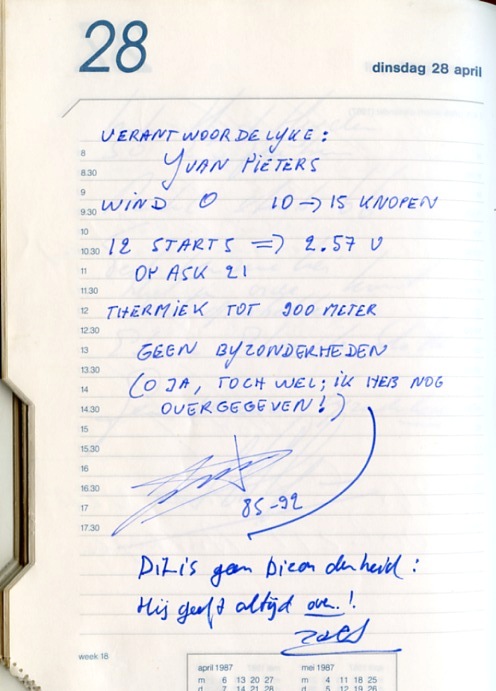 28
dinsdag 28 april
VERANTWOORDELIJKE:
8
YVAN PIETERS
8.30
9
WIND O 10 → 15 KNOPEN
9.30
10
12 STARTS => 2.57 U
10.30
11
OP ASK 21
11.30
12 THERMIEK TOT 900 METER
12.30
13 GEEN BYZONDERHEDEN
13.30
14 (O JA, TOCH WEL; IK HEB NOG
14.30 OVERGEGEVEN!)
15
15.30
16
16.30
85-92
17
17.30
Dit is geen bijzonderheid:
Hij geeft altijd over!
week 18
april 1987 mei 1987
m 6 13 20 27 m 4 11 18 25
d 7 14 21 28 d 5 12 19 26